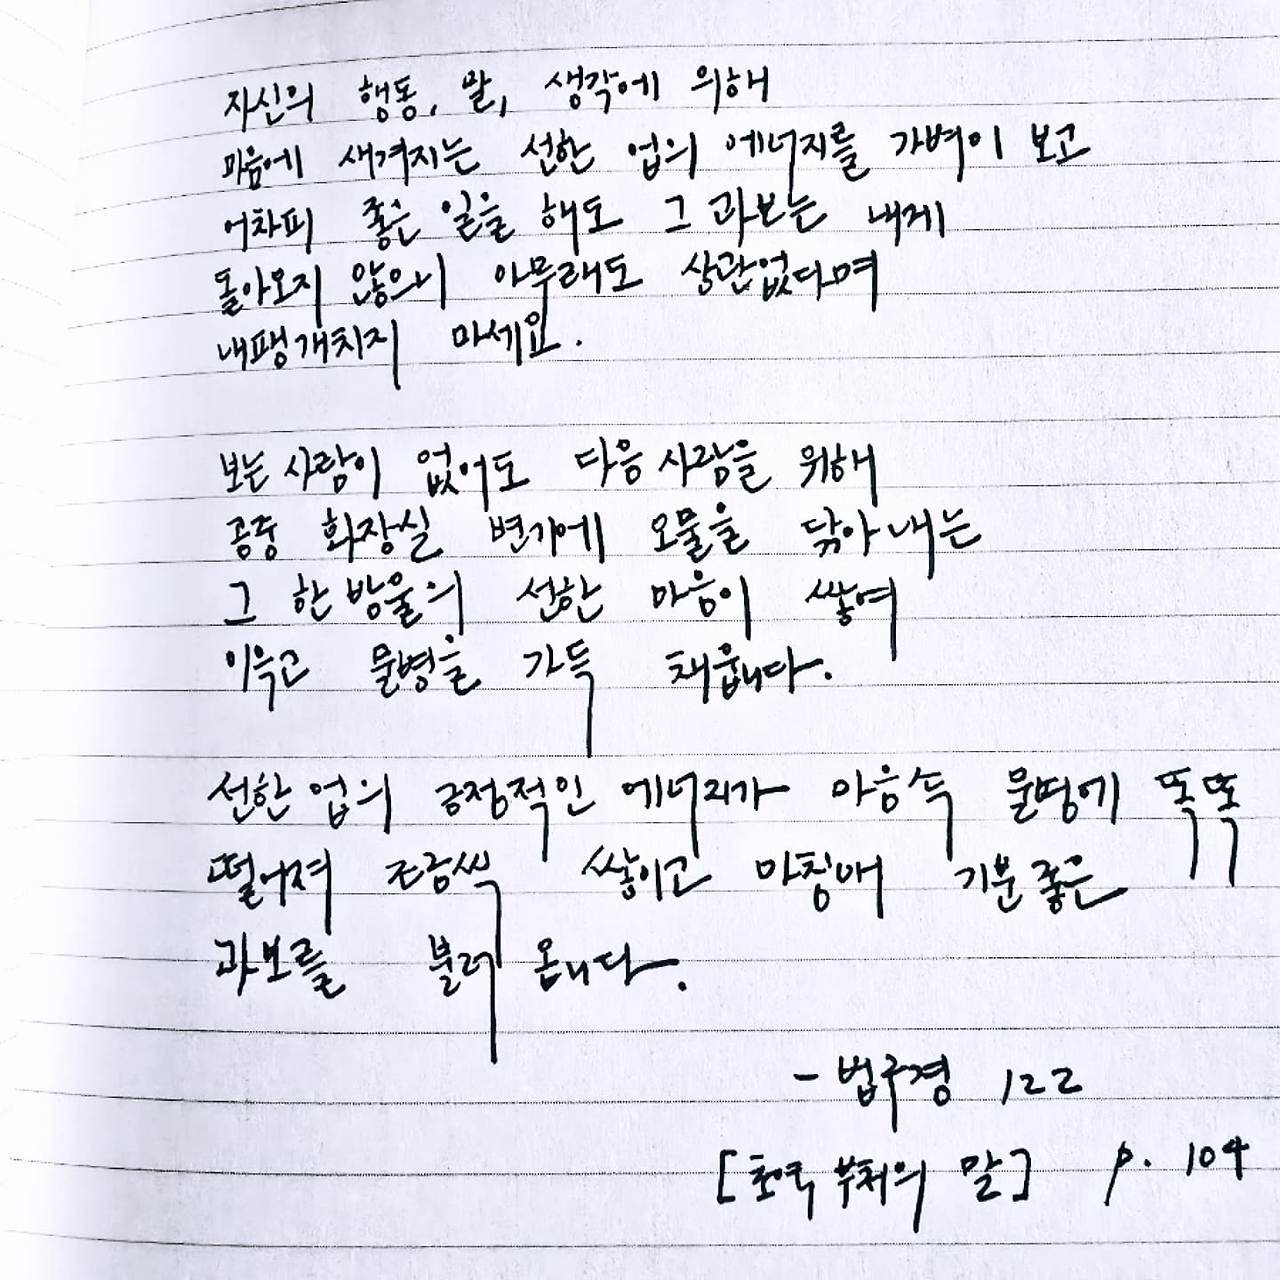 자신의 행동, 말, 생각에 의해
마음에 새겨지는 선한 업의 에너지를 가벼이 보고
어차피 좋은 일을 해도 그 과보는 내게
돌아오지 않으니 아무래도 상관없다며
내팽개치지 마세요.
보는 사람이 없어도 다음 사람을 위해
공중 화장실 변기에 오물을 닦아 내는
그 한 방울의 선한 마음이 쌓여
이윽고 물병을 가득 채웁니다.
선한 업의 긍정적인 에너지가 마음속 물병에 똑똑
떨어져 조금씩 쌓이고 마침내 기분 좋은
과보를 불러 옵니다.
- 법구경 122
[초역 부처의 말] p. 104